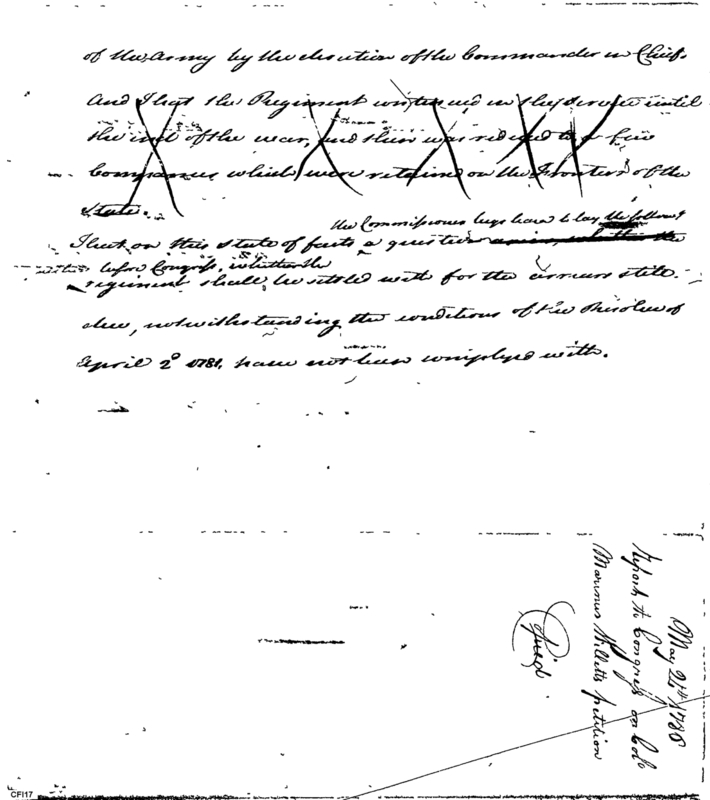 of the Army by the direction of the Commander in Chief.
And That the Regiment continued in the service until
the end of the war, and then was reduced to a few
Companies which were retained on the Frontiers of the
State.
the Commissioner begs leave to lay the follow
That on this state of facts a question whether the
before Congress, whether the
regiment shall be settled with for the arrears still
due, notwithstanding the conditions of the Resolve of
April 2d 1781, have not been complyed with.
May 26th 1786
Report to Congress on Colo
Marinus Willetts petition
Copied
CFI17